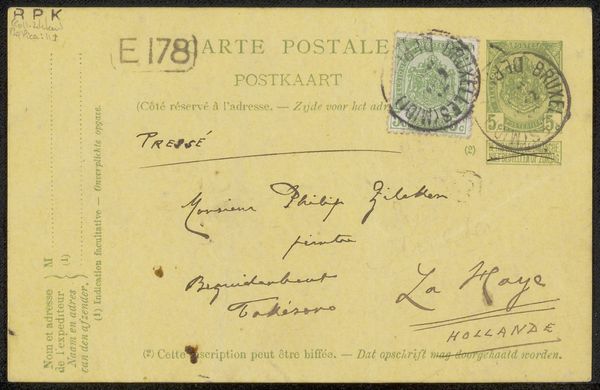 R P K
E 178
CARTE POSTALE
POSTKAART
(Côté réservé à l'adresse. — Zijde voor het
5c 5c
(2)
PRESSÉ
Monsieur Philip Zilcken
peintre
Bezuidenhout
La Haye
HOLLANDE
M (1)
Nom et adresse
de l'expéditeur
Naam en adres
van den afzender.
(1) Indication facultative — Onverplichte opgave.
(2) Cette inscription peut être biffée. — Dat opschrift mag doorgehaald worden.